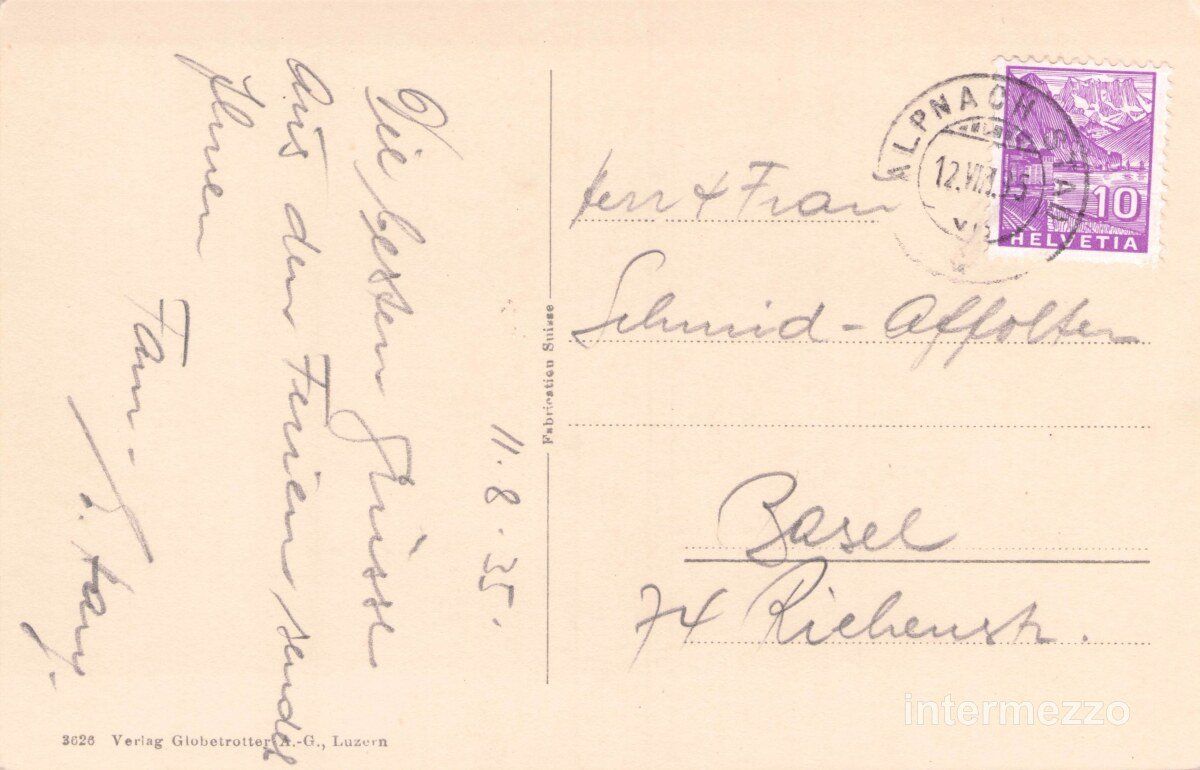 11.8.35.
Die besten Grüsse
Aus den Ferien sendet
Ihnen
Fam.
Fabrication Suisse
3626 Verlag Globetrotter A.-G., Luzern
ALPNACHSTAD
12.VIII.35
10
HELVETIA
Herr & Frau
Schmid-Affolter
Basel
74 Riehenstr.
intermezzo